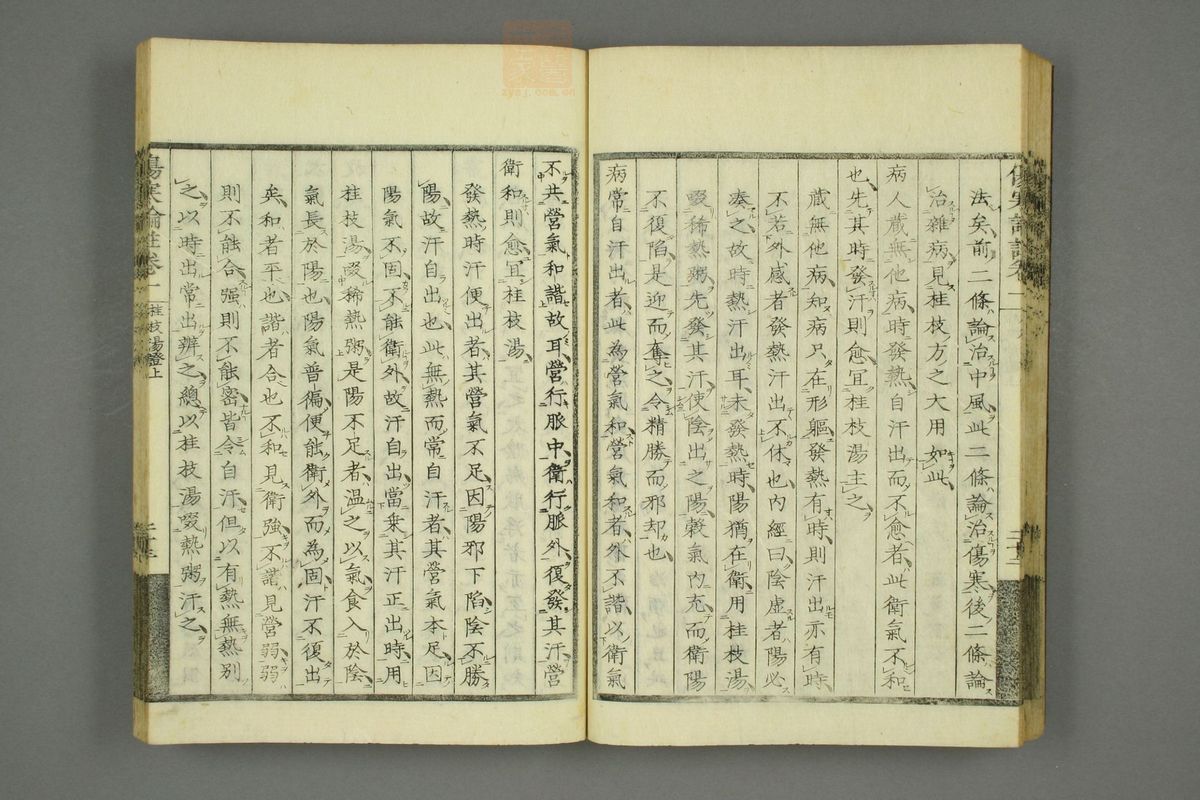 法矣前二條論治中風此二條論治傷寒後二條論
治雜病見桂枝方之大用如此
病人蔵無他病時發熱自汗出而不愈者此衛氣不和
也先其時發汗則愈宜桂枝湯主之
蔵無他病知病只在形軀發熱有時則汗出亦有時
不若外感者發熱汗出不休也內經曰陰虛者陽必
湊之故時熱汗出耳未發熱時陽猶在衛用桂枝湯
啜稀熱粥先發其汗使陰出之陽穀氣內充而衛陽
不復陷是迎而奪之令精勝而邪却也
病常自汗出者此為營氣和營氣和者外不諧以衛氣
不共營氣和諧故耳營行脈中衛行脈外復發其汗營
衛和則愈宜桂枝湯
發熱時汗便出者其營氣不足因陽邪下陷陰不勝
陽故汗自出也此無熱而常自汗者其營氣本足因
陽氣不固不能衛外故汗自出當乗其汗正出時用
桂枝湯啜稀熱粥是陽不足者温之以氣食入於陰
氣長於陽也陽氣普徧便能衛外而為固汗不復出
矣和者平也諧者合也不和見衛強不諧見營弱弱
則不能合强則不能密皆令自汗但以有熱無熱別
之以時出常出辨之總以桂枝湯啜熱粥汗之
傷寒論註卷一
桂枝湯證上
zysj.com.cn